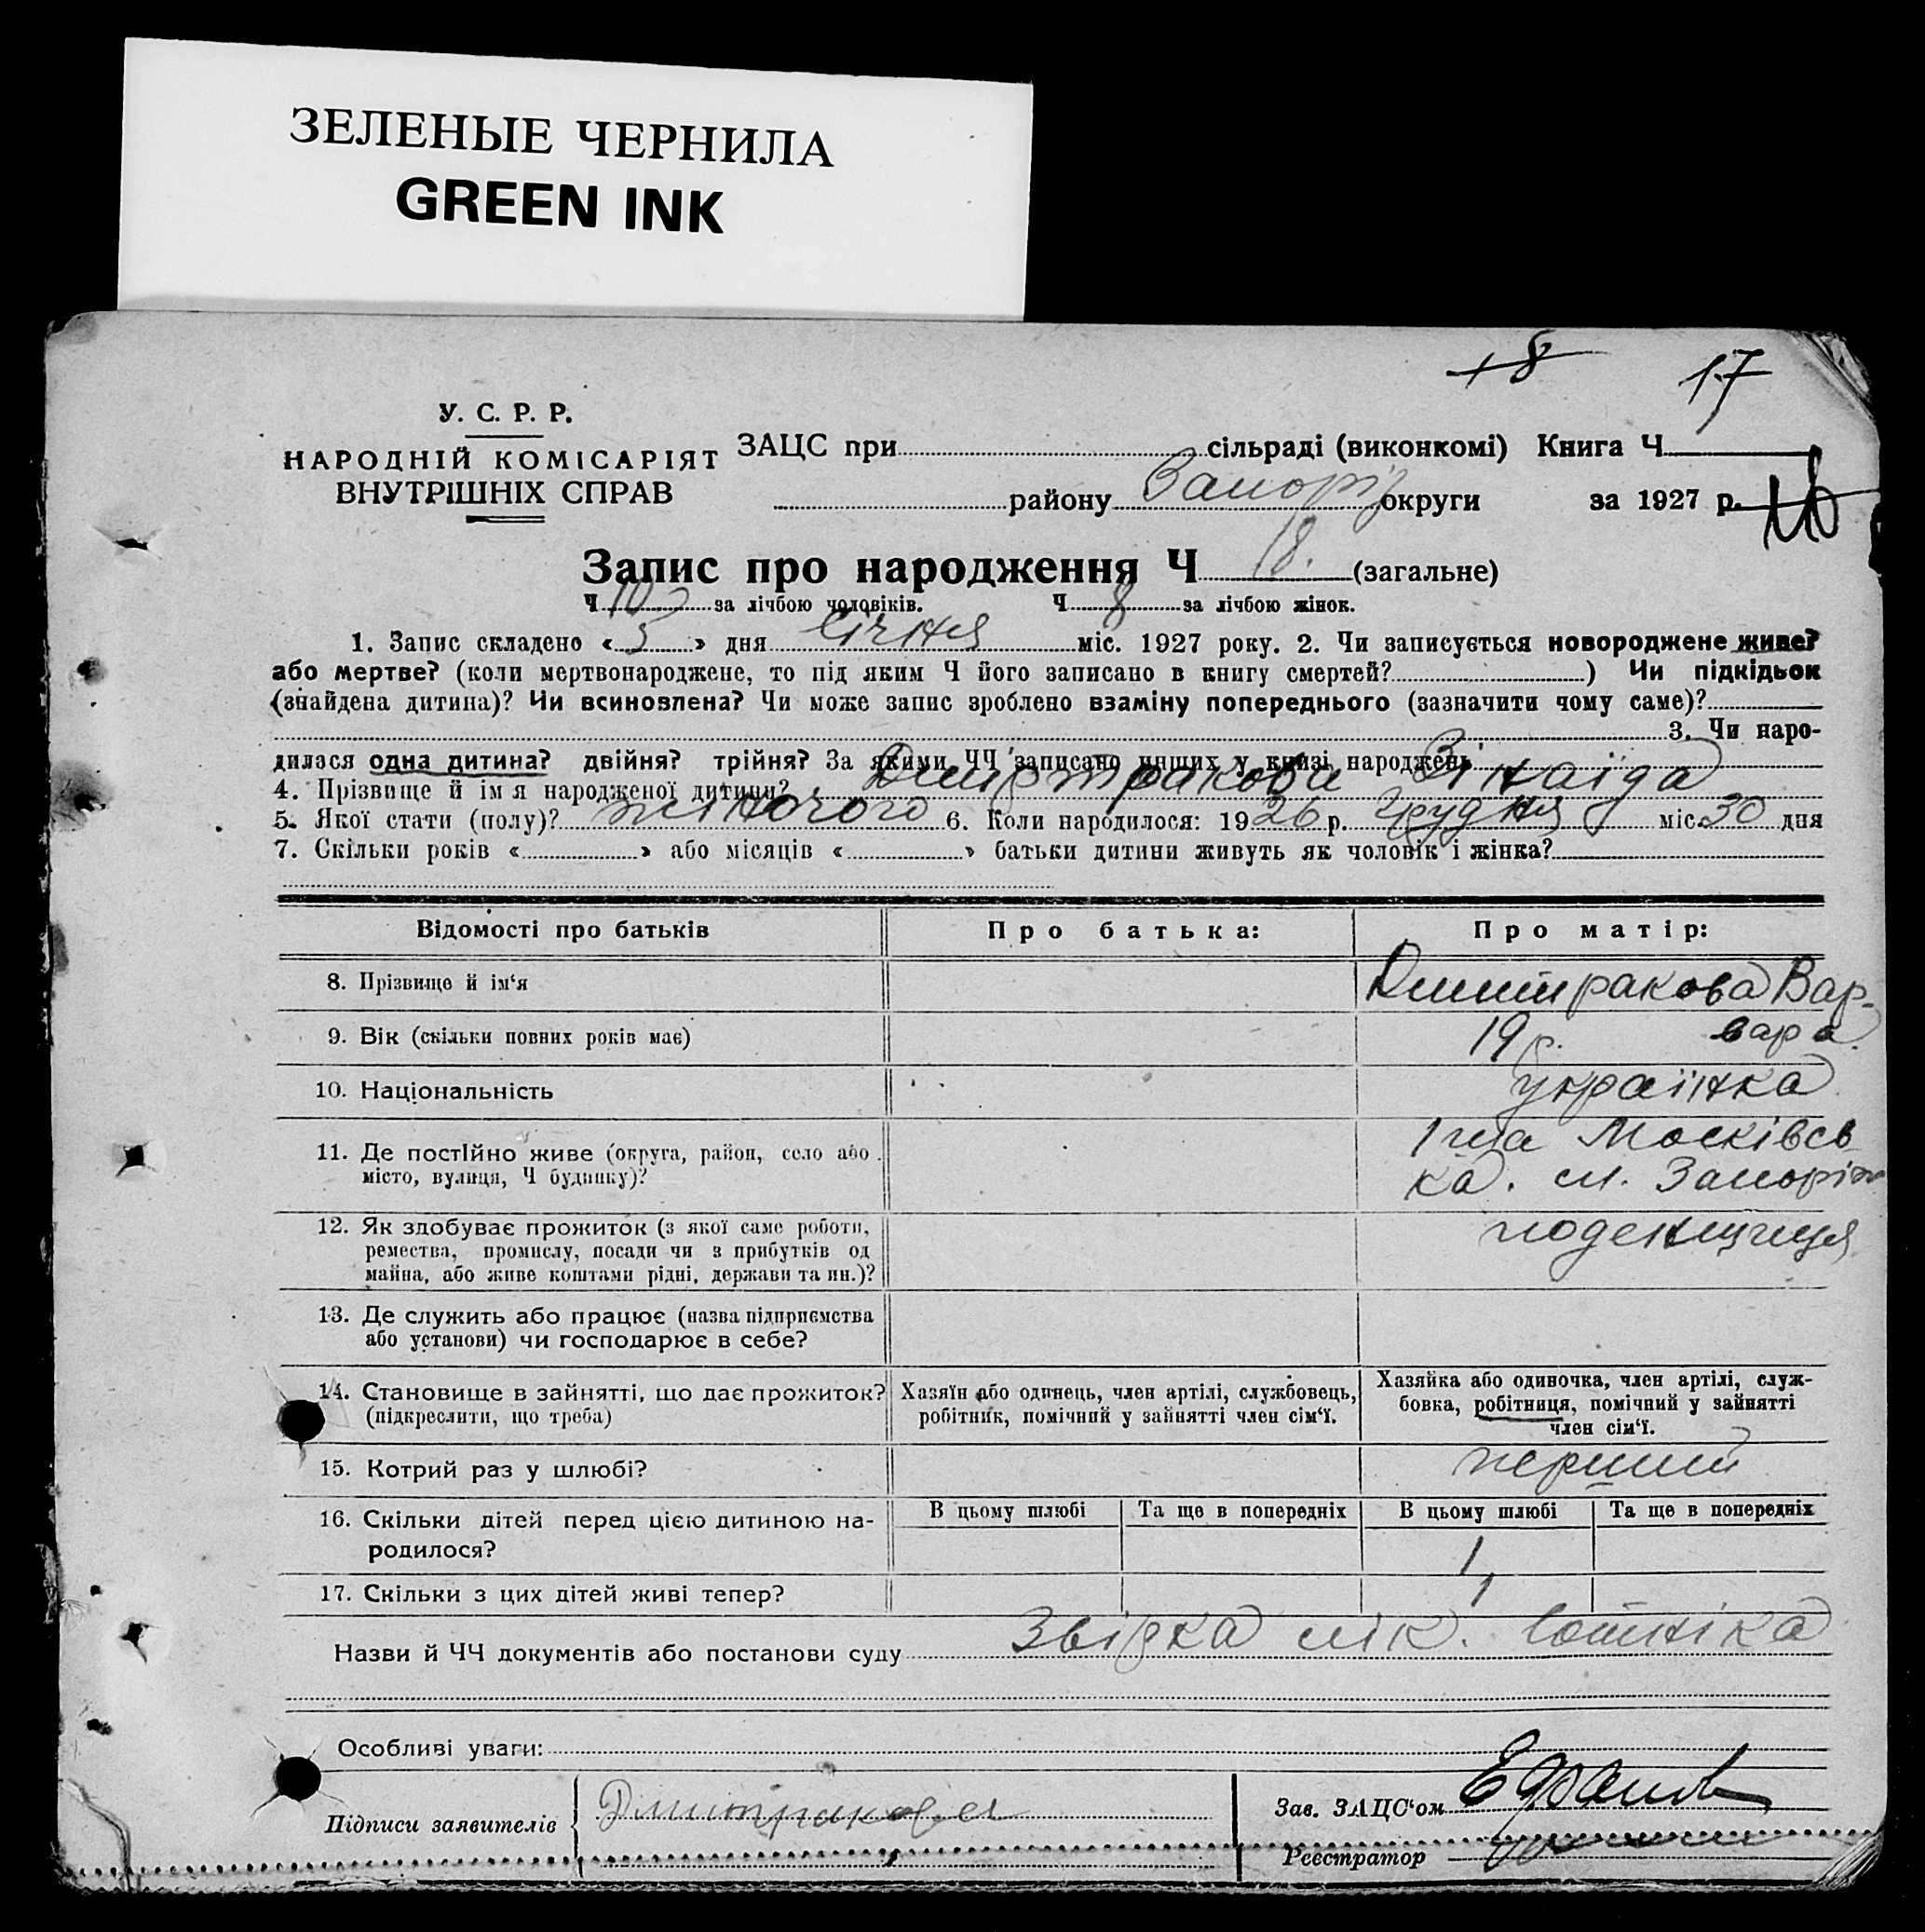 ЗЕЛЕНЫЕ ЧЕРНИЛА
GREEN INK
18 17
У. С. Р. Р.
НАРОДНІЙ КОМІСАРІЯТ
ВНУТРІШНІХ СПРАВ
ЗАЦС при сільраді (виконкомі) Книга Ч
району Запоріз округи за 1927 р. 16
Запис про народження Ч 18. (загальне)
Ч 10 за лічбою чоловіків. Ч 8 за лічбою жінок.
1. Запис складено « 5 » дня Січня міс. 1927 року. 2. Чи записується новороджене живе?
або мертве? (коли мертвонароджене, то під яким Ч його записано в книгу смертей? ) Чи підкідьок
(знайдена дитина)? Чи всиновлена? Чи може запис зроблено взаміну попереднього (зазначити чому саме)?
3. Чи наро-
дилася одна дитина? двійня? трійня? За якими ЧЧ записано инших у книзі народжень
4. Прізвище й імя народженої дитини? Дмитракова Зінаїда
5. Якої стати (полу)? жіночого 6. Коли народилося: 1926 р. Грудня міс. 30 дня
7. Скільки років « » або місяців « » батьки дитини живуть як чоловік і жінка?
Відомості про батьків Про батька: Про матір:
8. Прізвище й ім‘я Дмитракова Вар-
вара
9. Вік (скільки повних років має) 19 р.
10. Національність українка
11. Де постійно живе (округа, район, село або
місто, вулиця, Ч будинку)?
Московсь
ка. м. Запоріж
12. Як здобуває прожиток (з якої саме роботи,
ремества, промислу, посади чи з прибутків од
майна, або живе коштами рідні, держави та ин.)?
поденщиця
13. Де служить або працює (назва підприємства
або установи) чи господарює в себе?
14. Становище в зайнятті, що дає прожиток?
(підкреслити, що треба)
Хазяїн або одинець, член артілі, службовець,
робітник, помічний у зайнятті член сім‘ї.
Хазяйка або одиночка, член артілі, служ-
бовка, робітниця, помічний у зайнятті
член сім‘ї.
15. Котрий раз у шлюбі? перший
16. Скільки дітей перед цією дитиною на-
родилося?
В цьому шлюбі Та ще в попередніх В цьому шлюбі Та ще в попередніх
1
17. Скільки з цих дітей живі тепер? 1
Назви й ЧЧ документів або постанови суду Звідка лік.
Особливі уваги:
Підписи заявителів Дмитракова
Зав. ЗАЦС‘ом
Реєстратор